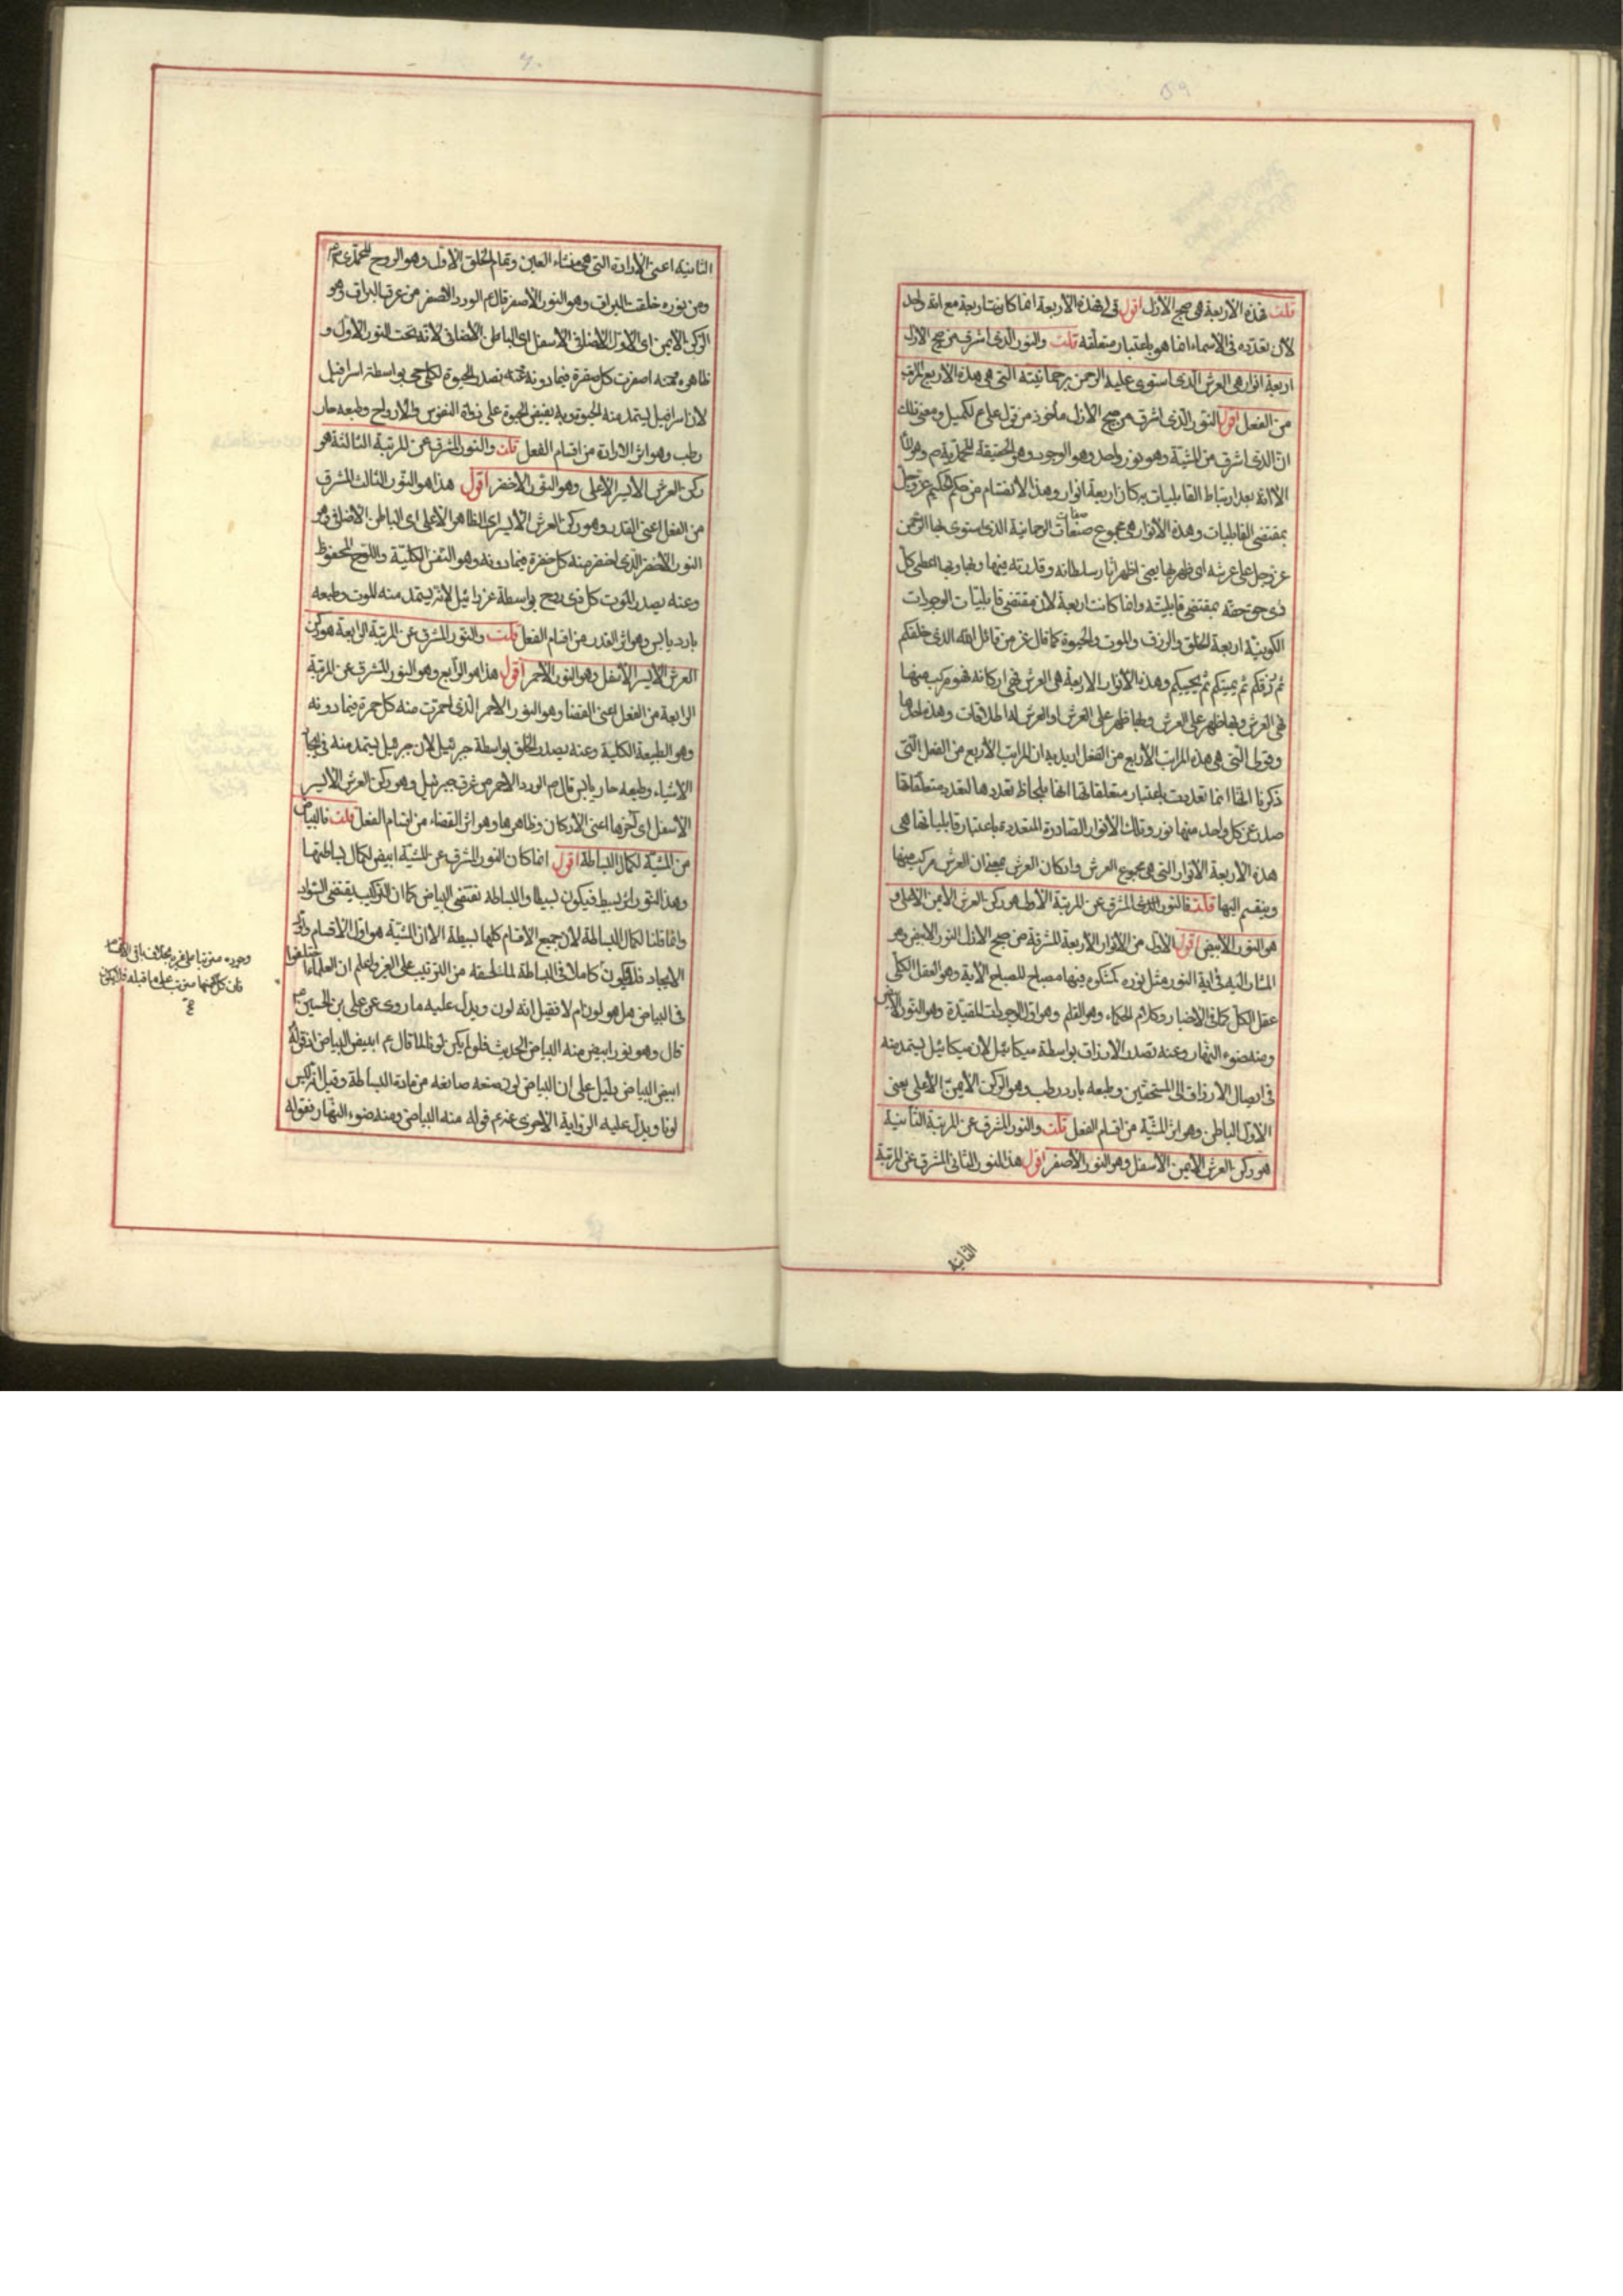 ٥٩
قلت فهذه الأربعة هى صبح الأزل اقول قولى فهذه الأربعة انما كانت اربعة مع انه واحد
لأن تعدده فى الأسماء انما هو باعتبار متعلقه قلت والنور الذى اشرق من صبح الازل
اربعة انوار هى العرش الذى استوى عليه الرحمن برحمانيته التى هى هذه الأربع المراتب
من الفعل اقول النور الذى اشرق من صبح الازل مأخوذ من قول على ع لكميل ومعنى ذلك
ان الذى اشرق من المشيّة وهو نور واحد وهو الوجود وهو الحقيقة المحمدية ص وهو الماء
الا انه بعد ارتباط القابليات به كان اربعة انوار وهذا الانقسام من حكم الحكيم عز وجل
بمقتضى القابليات وهذه الأنوار هى مجموع صفات الرحمانية الذى استوى بها الرحمن
عز وجل على عرشه اى ظهر بها يعنى اظهر اثار سلطانه وقدرته فيها وبها وبها اعطى كل
ذى حق حقه بمقتضى قابليته وانما كانت اربعة لأن مقتضى قابليّات الوجودات
الكونيّة اربعة الخلق والرزق والموت والحيوة كما قال عز من قائل الله الذى خلقكم
ثم رزقكم ثم يميتكم ثم يحييكم وهذه الأنوار الاربعة هى العرش فهى اركانه فهو مركب منها
فهى العرش وبها ظهر على العرش وبها ظهر على العرش او العرش لها اطلاقات وهذه احدها
وقولى التى هى هذه المراتب الأربع من الفعل اريد به ان المراتب الأربع من الفعل التى
ذكرنا انها انما تعددت باعتبار متعلقاتها انها بلحاظ تعددها لتعدد متعلقاتها
صدر عن كل واحد منها نور وتلك الأنوار الصادرة المتعددة باعتبار قابلياتها هى
هذه الأربعة الأنوار التى هى مجموع العرش واركان العرش بمعنى ان العرش مركب منها
وينقسم اليها قلت فالنور الذى المشرق عن المرتبة الأولى هو ركن العرش الأيمن الأعلى و
هو النور الأبيض اقول الأول من الأنوار الأربعة المشرقة من صبح الازل النور الابيض وهو
المشار اليه فى اية النور مثل نوره كمشكوة فيها مصباح المصباح الآية وهو العقل الكلى
عقل الكل كما فى الاخبار وكلام الحكماء وهو القلم وهو اوّل الوجودات المقيّدة وهو النور الأبيض
ومنه ضوء النهار وعنه تصدر الارزاق بواسطة ميكائيل لأن ميكائيل يستمد منه
فى ايصال الارزاق الى المستحقين وطبعه بارد رطب وهو الركن الأيمن الأعلى يعنى
الاول الباطن وهو اثر المشيّة من اقسام الفعل قلت والنور المشرق عن المرتبة الثانية
هو ركن العرش الأيمن الأسفل وهو النور الأصفر اقول هذا النور الثانى المشرق عن المرتبة
الثانية
٦٠
الثانية اعنى الأرادة التى هى منشاء العين وتمام الخلق الأول وهو الروح المحمدى ص
ومن نوره خلقت البراق وهو النور الأصفر قال ع الورد الاصفر من عرق البراق وهو
الركن الايمن اى الاول الاضافى الاسفل اى الباطن الاضافى لأنه تحت النور الأول و
ظاهره عنه اصفرت كل صفرة فيما دونه وعنه تصدر الحيوة لكل حى بواسطة اسرافيل
لأن اسرافيل يستمد منه الحيوة وبه يفيض الحيوة على ذوات النفوس والارواح وطبعه حار
رطب وهو اثر الارادة من اقسام الفعل قلت والنور المشرق عن المرتبة الثالثة هو
ركن العرش الأيسر الأعلى وهو النور الأخضر اقول هذا هو النور الثالث المشرق
من الفعل اعنى القدر وهو ركن العرش الأيسر اى الظاهر الأعلى اى الباطن الاضافى وهو
النور الأخضر الذى اخضر منه كل خضرة فيما دونه وهو النفس الكليّة واللوح المحفوظ
وعنه يصدر الموت كل ذى روح بواسطة عزرائيل لأنه يستمد منه الموت وطبعه
بارد يابس وهو اثر القدر من اقسام الفعل قلت والنور المشرق عن المرتبة الرابعة هو ركن
العرش الأيسر الأسفل وهو النور الأحمر اقول هذا هو الرابع وهو النور المشرق عن المرتبة
الرابعة من الفعل اعنى القضاء وهو النور الاحمر الذى احمرت منه كل حمرة فيما دونه
وهو الطبيعة الكلية وعنه يصدر الخلق بواسطة جبرئيل لأن جبرئيل يستمد منه فى ايجاد
الاشياء وطبعه حار يابس قال ص الورد الاحمر من عرق جبرئيل وهو ركن العرش الأيسر
الأسفل اى آخرها اعنى الأركان وظاهرها وهو اثر القضاء من اقسام الفعل قلت فالبياض
من المشيّة لكمال البساطة اقول انما كان النور المشرق عن المشيّة ابيض لكمال بساطتها
وهذا النور اثر بسيط فيكون بسيطا والبساطة تقتضى البياض كما ان التركيب يقتضى السّواد
وانما قلنا لكمال البساطة لأن جميع الأقسام كلها بسيطة الا ان المشيّة هو اول الأقسام
الايجاد فلا يكون كاملا فى البساطة لما تلحقه من الترتيب على الغير واعلم ان العلماء اختلفوا
فى البياض هل هو لون ام لا فقيل انه لون ويدل عليه ما روى عن على بن الحسين ع
قال وهو نور ابيض منه البياض الحديث فلو لم يكن لونا لما قال ع ابيض البياض اذ قوله
ابيض البياض دليل على ان البياض لون صنعه صانعه من مادة البساطة وقيل انه ليس
لونا ويدل عليه الرواية الاخرى عنه ع قوله منه البياض ومنه ضوء النهار فقوله
وجوده مترتبا على غيره بخلاف باقى الاقسام
فان كل منها مترتب على ما قبله فلا يكون